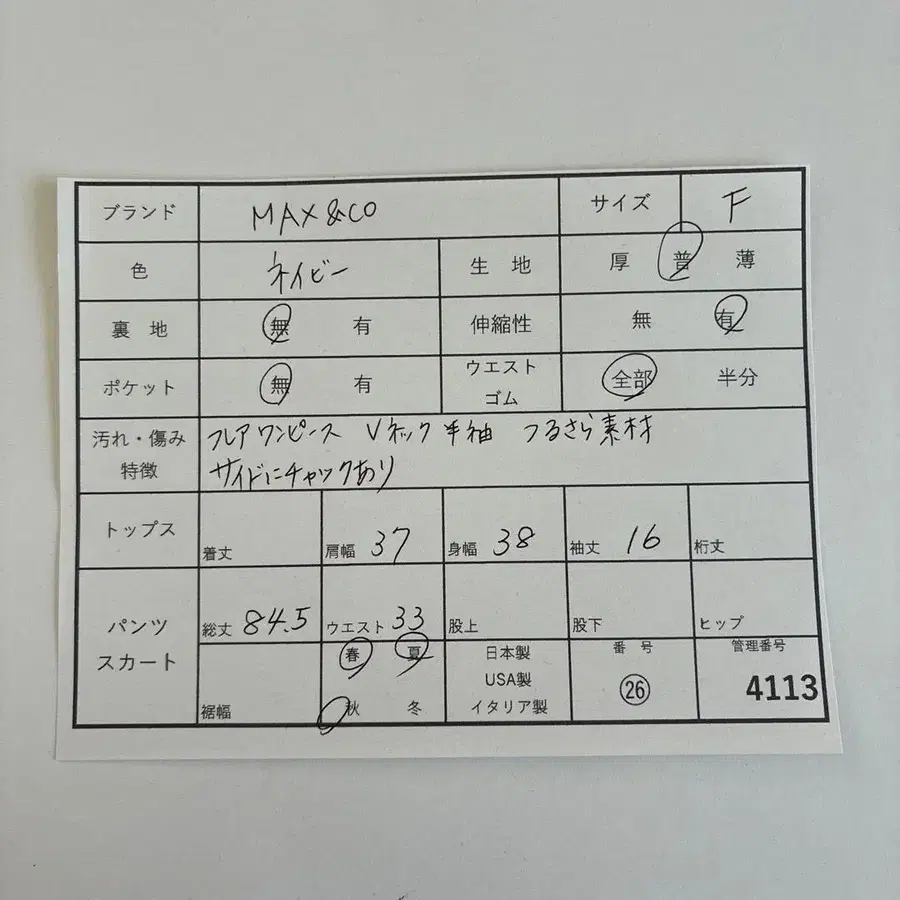 ブランド MAX&CO サイズ F
色 ネイビー 生地 厚 普 薄
裏地 無 有 伸縮性 無 有
ポケット 無 有 ウエスト ゴム 全部 半分
汚れ・傷み 特徴 フレアワンピース Vネック 半袖 つるさら素材
サイドにチャックあり
トップス 着丈 肩幅 37 身幅 38 袖丈 16 裄丈
パンツ スカート 総丈 84.5 ウエスト 33 股上 股下 ヒップ
裾幅 春 夏 秋 冬 日本製 USA製 イタリア製 番号 ㉖ 管理番号 4113